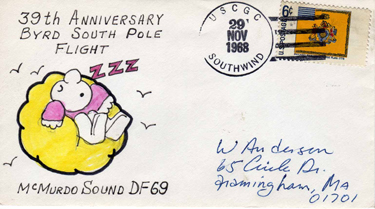 39TH ANNIVERSARY
BYRD SOUTH POLE
FLIGHT
ZZZ
McMURDO SOUND DF69
USCGC
29
NOV
1968
SOUTHWIND
6¢
U.S. POSTAGE
W Anderson
65 Circle Dr.
Framingham, MA
01701